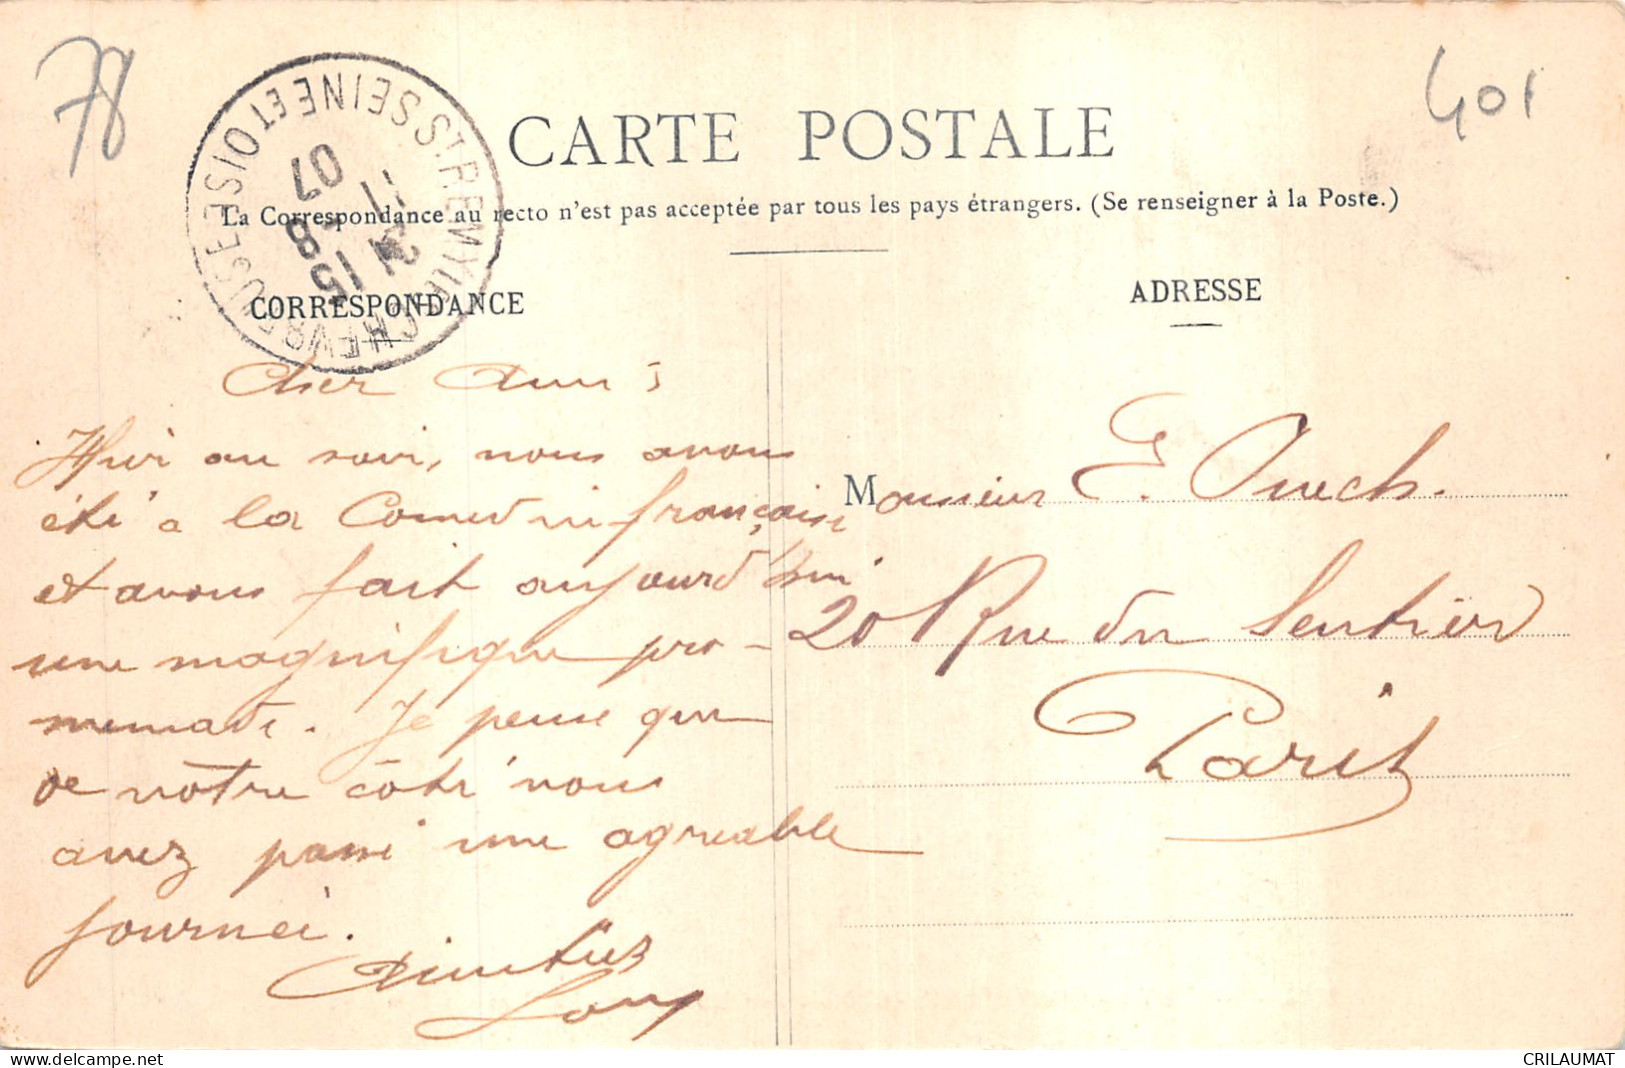 78
401
CARTE POSTALE
La Correspondance au recto n'est pas acceptée par tous les pays étrangers. (Se renseigner à la Poste.)
ST REMY LES CHEVREUSE SEINE ET OISE
15
11 -8
07
CORRESPONDANCE
ADRESSE
Cher Ami
Hier au soir, nous avons
été à la Comedie française
et avons fait aujourd'hui
une magnifique pro-
menade. Je pense que
de notre côté vous
avez passé une agreable
journée.
Amitiés
Monsieur E.
20 Rue du Sentier
Paris
www.delcampe.net
CRILAUMAT